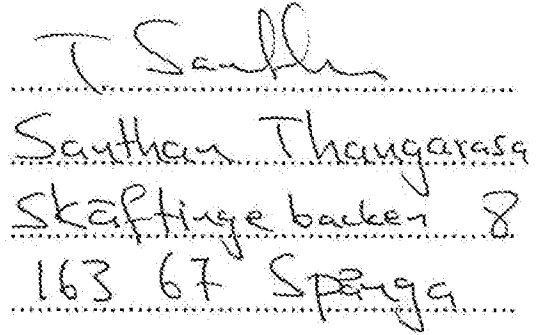 T Santhan
Santhan Thangarasa
Skäftingebacken 8
163 67 Spånga